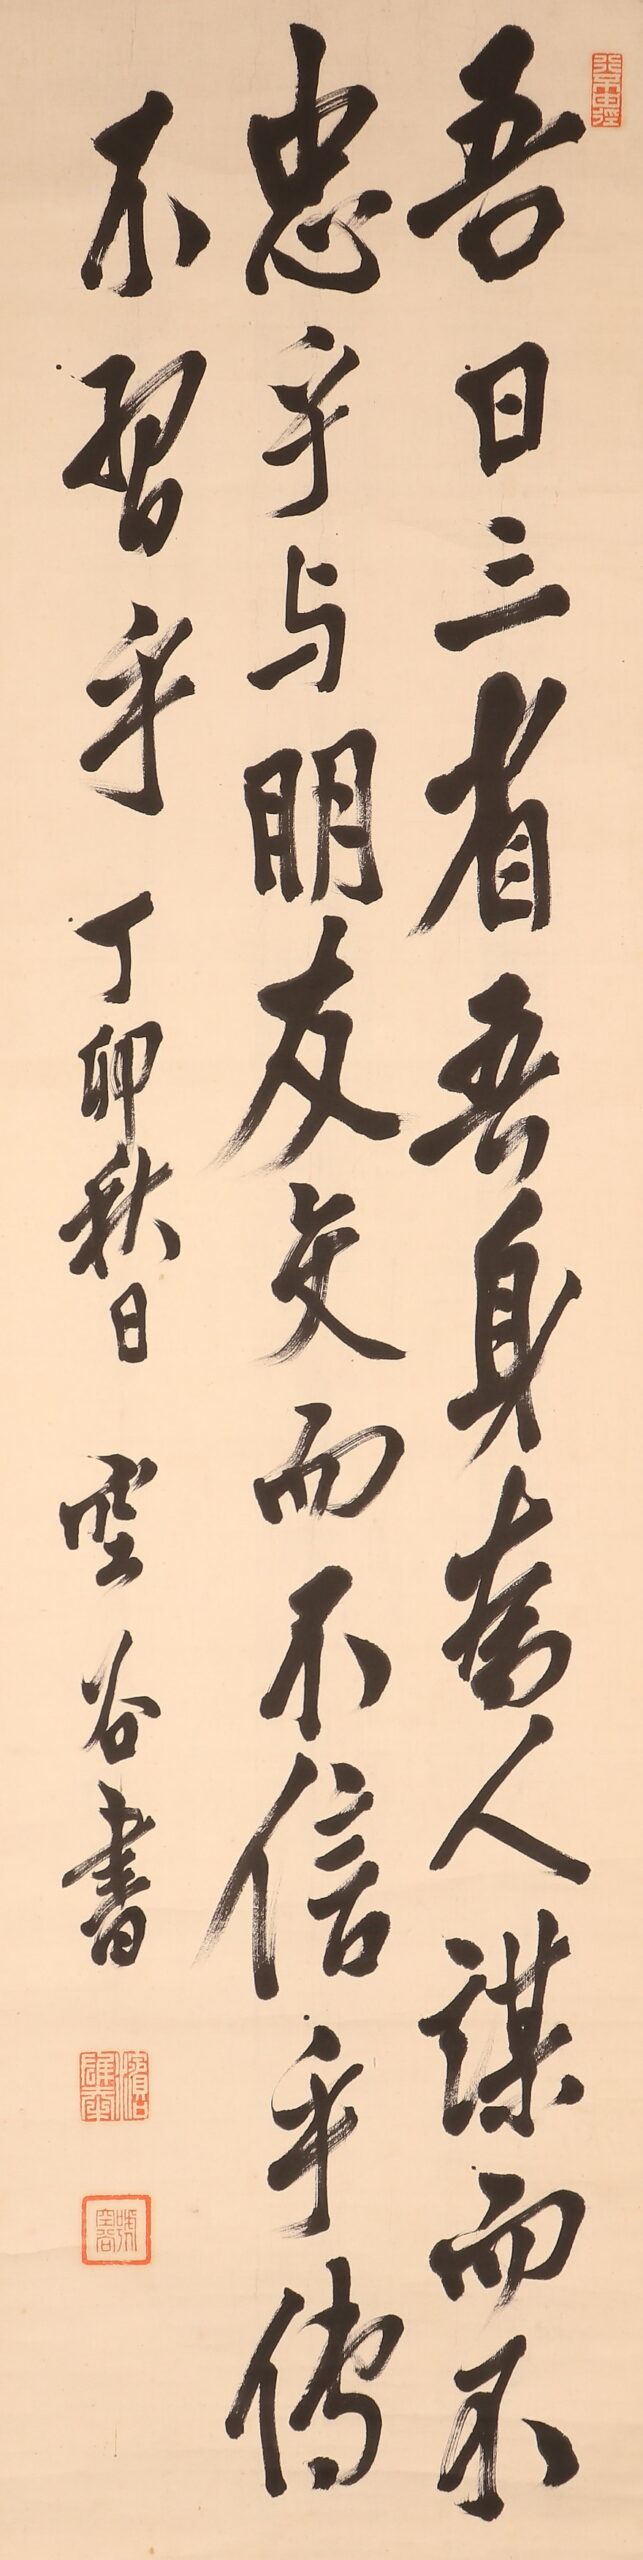 行不由徑
吾日三省吾身為人謀而不
忠乎与朋友交而不信乎傳
不習乎 丁卯秋日 空谷書